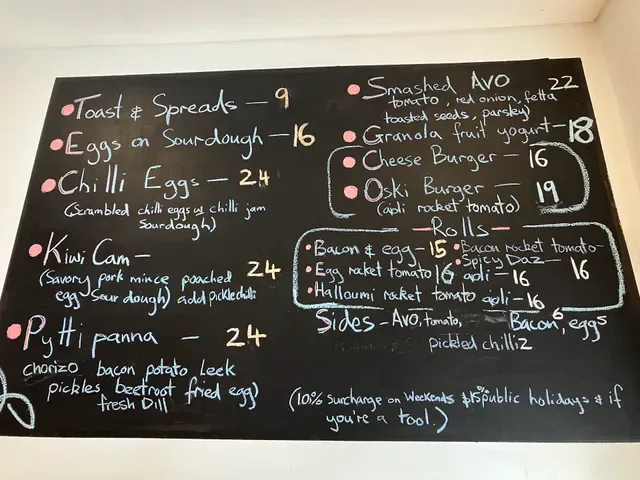 Toast & Spreads — 9
Eggs on Sourdough — 16
Chilli Eggs — 24
(Scrambled chilli eggs w chilli jam
sourdough)
Kiwi Cam —
(Savory pork mince poached 24
egg sourdough) add pickle chilli
Pyttipanna — 24
chorizo bacon potato leek
pickles beetroot fried egg)
fresh Dill
Smashed AVO 22
tomato, red onion, fetta
toasted seeds, parsley)
Granola fruit yogurt — 18
Cheese Burger — 16
Oski Burger — 19
(aoli rocket tomato)
— Rolls —
Bacon & egg — 15
Egg rocket tomato 16
Halloumi rocket tomato aoli — 16
Bacon rocket tomato
aoli — 16
Spicy Daz — 16
Sides — Avo, tomato, Bacon 6, eggs
pickled chilli 2
(10% surcharge on weekends 15% public holidays & if
you're a tool.)